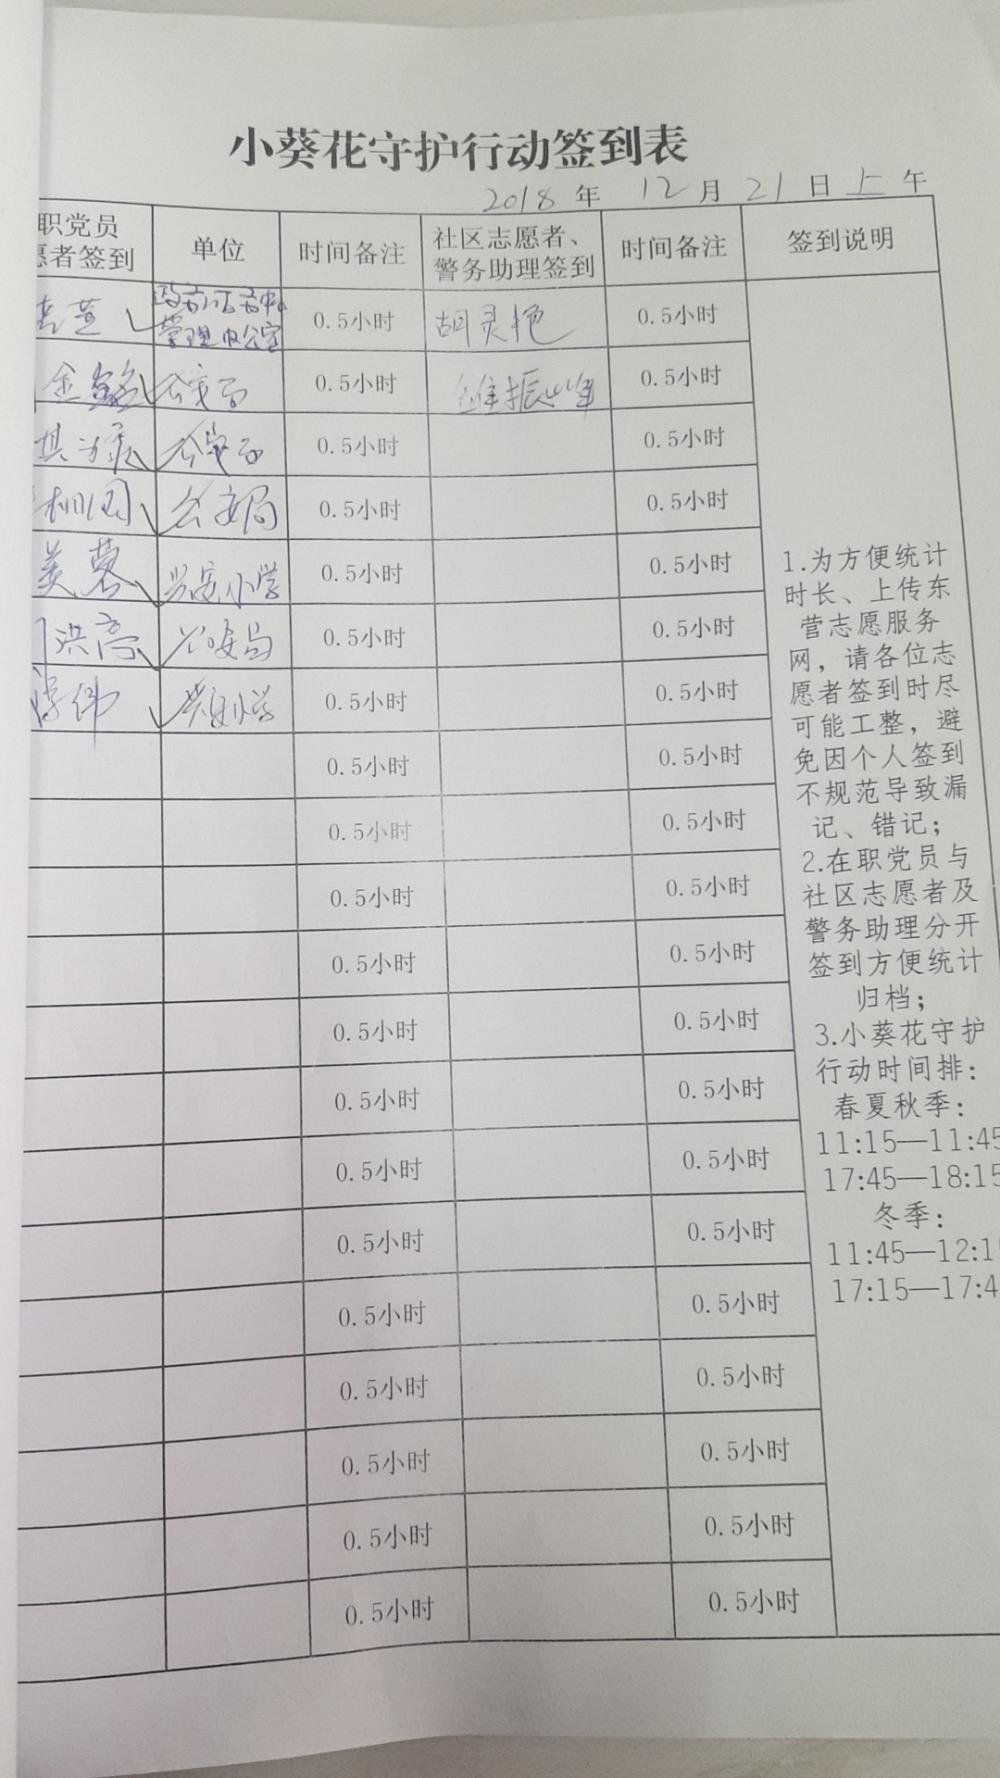 小葵花守护行动签到表
2018 年 12 月 21 日 上 午
职党员 单位 时间备注 社区志愿者、 时间备注 签到说明
愿者签到 警务助理签到
0.5小时 胡灵艳 0.5小时
管理办公室
金 0.5小时 振 0.5小时
0.5小时 0.5小时
公安局 0.5小时 0.5小时
美蓉 兴安小学 0.5小时 0.5小时
洪亮 公安局 0.5小时 0.5小时
伟 0.5小时 0.5小时
0.5小时 0.5小时
0.5小时 0.5小时
0.5小时 0.5小时
0.5小时 0.5小时
0.5小时 0.5小时
0.5小时 0.5小时
0.5小时 0.5小时
0.5小时 0.5小时
0.5小时 0.5小时
0.5小时 0.5小时
0.5小时 0.5小时
0.5小时 0.5小时
0.5小时 0.5小时
1.为方便统计
时长、上传东
营志愿服务
网，请各位志
愿者签到时尽
可能工整，避
免因个人签到
不规范导致漏
记、错记；
2.在职党员与
社区志愿者及
警务助理分开
签到方便统计
归档；
3.小葵花守护
行动时间排：
春夏秋季：
11:15—11:45
17:45—18:15
冬季：
11:45—12:1
17:15—17:4